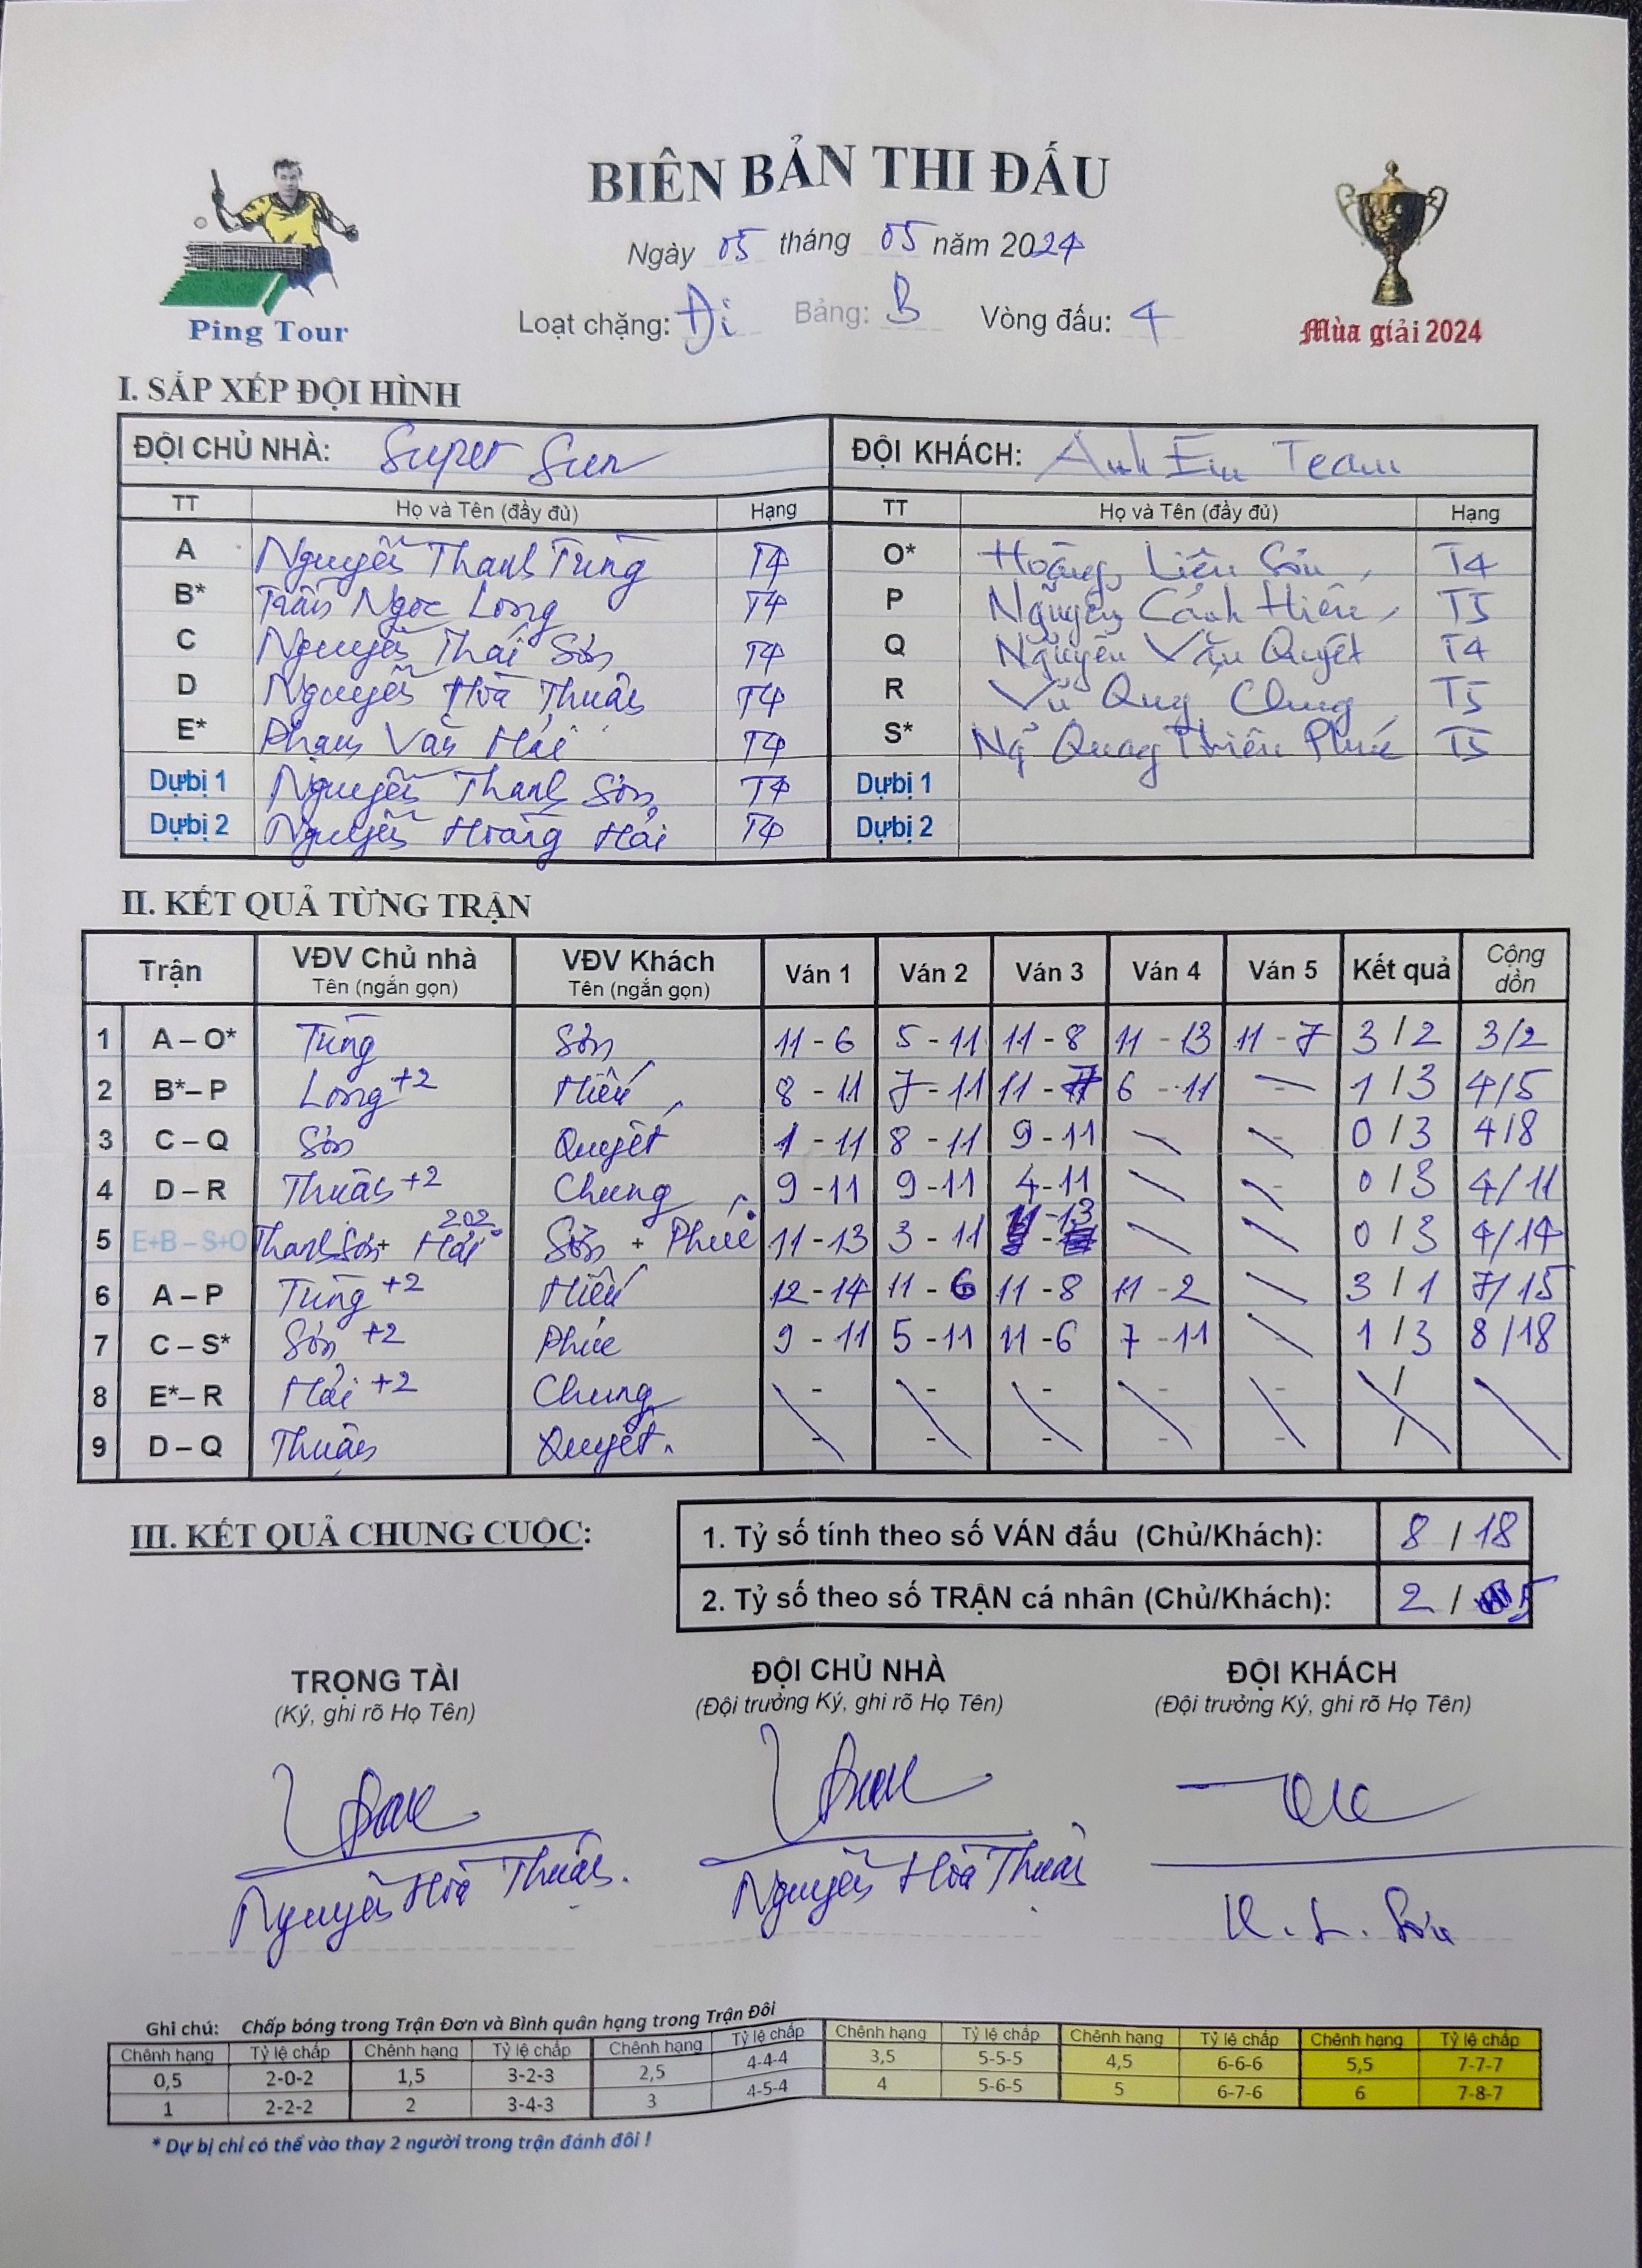 BIÊN BẢN THI ĐẤU
Ngày 05 tháng 05 năm 2024
Loạt chặng: Đi Bảng: B Vòng đấu: 4
Ping Tour
Mùa giải 2024
I. SẮP XẾP ĐỘI HÌNH
ĐỘI CHỦ NHÀ: Super Sun ĐỘI KHÁCH: Anh Em Team
TT Họ và Tên (đầy đủ) Hạng TT Họ và Tên (đầy đủ) Hạng
A Nguyễn Thanh Tùng T4 O* Hoàng Liên Sơn T4
B* Trần Ngọc Long T4 P Nguyễn Cảnh Hiếu T5
C Nguyễn Thái Sơn T4 Q Nguyễn Văn Quyết T4
D Nguyễn Hòa Thuận T4 R Vũ Quy Chung T5
E* Phạm Văn Hải T4 S* Ng Quang Thiên Phúc T5
Dựbị 1 Nguyễn Thanh Sơn T4 Dựbị 1
Dựbị 2 Nguyễn Hoàng Hải T4 Dựbị 2
II. KẾT QUẢ TỪNG TRẬN
Trận VĐV Chủ nhà Tên (ngắn gọn) VĐV Khách Tên (ngắn gọn) Ván 1 Ván 2 Ván 3 Ván 4 Ván 5 Kết quả Cộng dồn
1 A – O* Tùng Sơn 11 - 6 5 - 11 11 - 8 11 - 13 11 - 7 3 / 2 3/2
2 B*– P Long +2 Hiếu 8 - 11 7 - 11 11 - 7 6 - 11 - 1 / 3 4/5
3 C – Q Sơn Quyết 1 - 11 8 - 11 9 - 11 - - 0 / 3 4/8
4 D – R Thuận +2 Chung 9 - 11 9 - 11 4 - 11 - - 0 / 3 4/11
5 E+B – S+O Thanh Sơn + Hải 202 Sơn + Phúc 11 - 13 3 - 11 11 - 13 - - 0 / 3 4/14
6 A – P Tùng +2 Hiếu 12 - 14 11 - 6 11 - 8 11 - 2 - 3 / 1 7/15
7 C – S* Sơn +2 Phúc 9 - 11 5 - 11 11 - 6 7 - 11 - 1 / 3 8/18
8 E*– R Hải +2 Chung - - - - - /
9 D – Q Thuận Quyết. - - - - - /
III. KẾT QUẢ CHUNG CUỘC:
1. Tỷ số tính theo số VÁN đấu (Chủ/Khách): 8 / 18
2. Tỷ số theo số TRẬN cá nhân (Chủ/Khách): 2 / 5
TRỌNG TÀI ĐỘI CHỦ NHÀ ĐỘI KHÁCH
(Ký, ghi rõ Họ Tên) (Đội trưởng Ký, ghi rõ Họ Tên) (Đội trưởng Ký, ghi rõ Họ Tên)
Nguyễn Hòa Thuận. Nguyễn Hòa Thuận H. L. Sơn
Ghi chú: Chấp bóng trong Trận Đơn và Bình quân hạng trong Trận Đôi
Chênh hạng Tỷ lệ chấp Chênh hạng Tỷ lệ chấp Chênh hạng Tỷ lệ chấp Chênh hạng Tỷ lệ chấp Chênh hạng Tỷ lệ chấp Chênh hạng Tỷ lệ chấp
0,5 2-0-2 1,5 3-2-3 2,5 4-4-4 3,5 5-5-5 4,5 6-6-6 5,5 7-7-7
1 2-2-2 2 3-4-3 3 4-5-4 4 5-6-5 5 6-7-6 6 7-8-7
* Dự bị chỉ có thể vào thay 2 người trong trận đánh đôi !